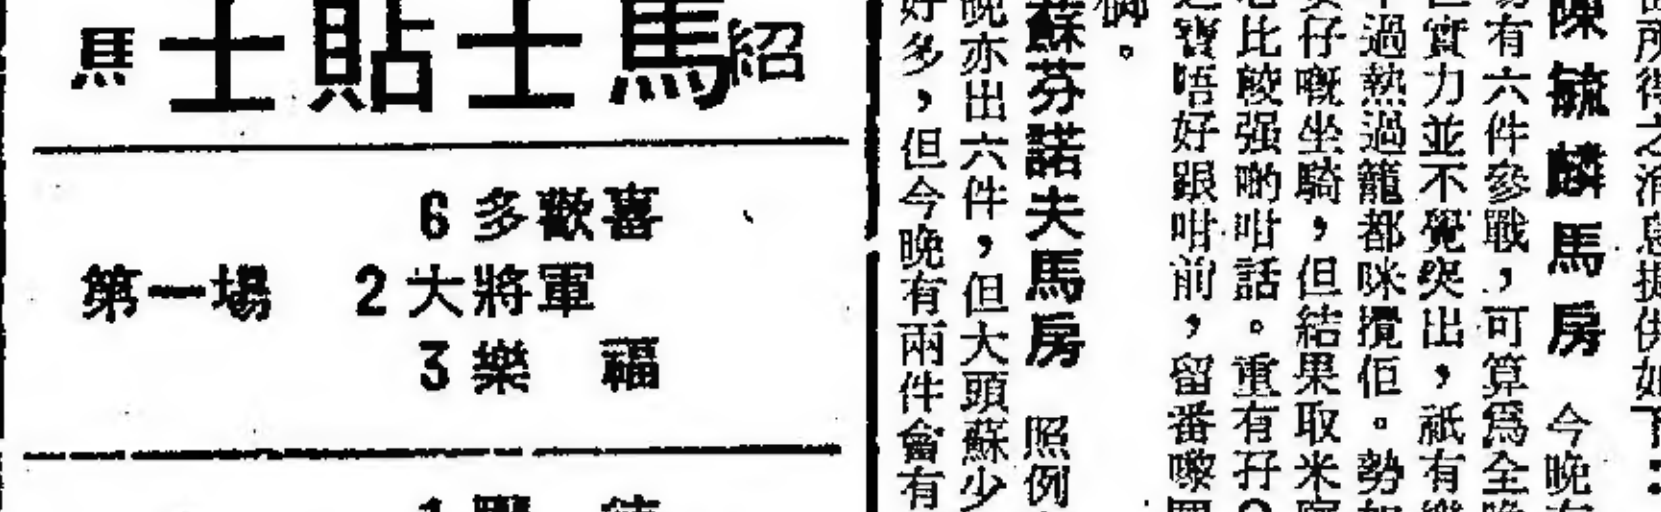 紹馬士貼士
第一場
6 多歡喜
2 大將軍
3 樂福
所得之消息提供如下：
陳毓麟馬房 今晚
有六件參戰，可算爲全
實力並不覺突出，祇有
過熱過籠都咪攪佢。勢
仔嘅坐騎，但結果取米
比較强啲咁話。重有孖
寶唔好跟咁前，留番嚟
蘇芬諾夫馬房 照例
晚亦出六件，但大頭蘇少
好多，但今晚有兩件會有